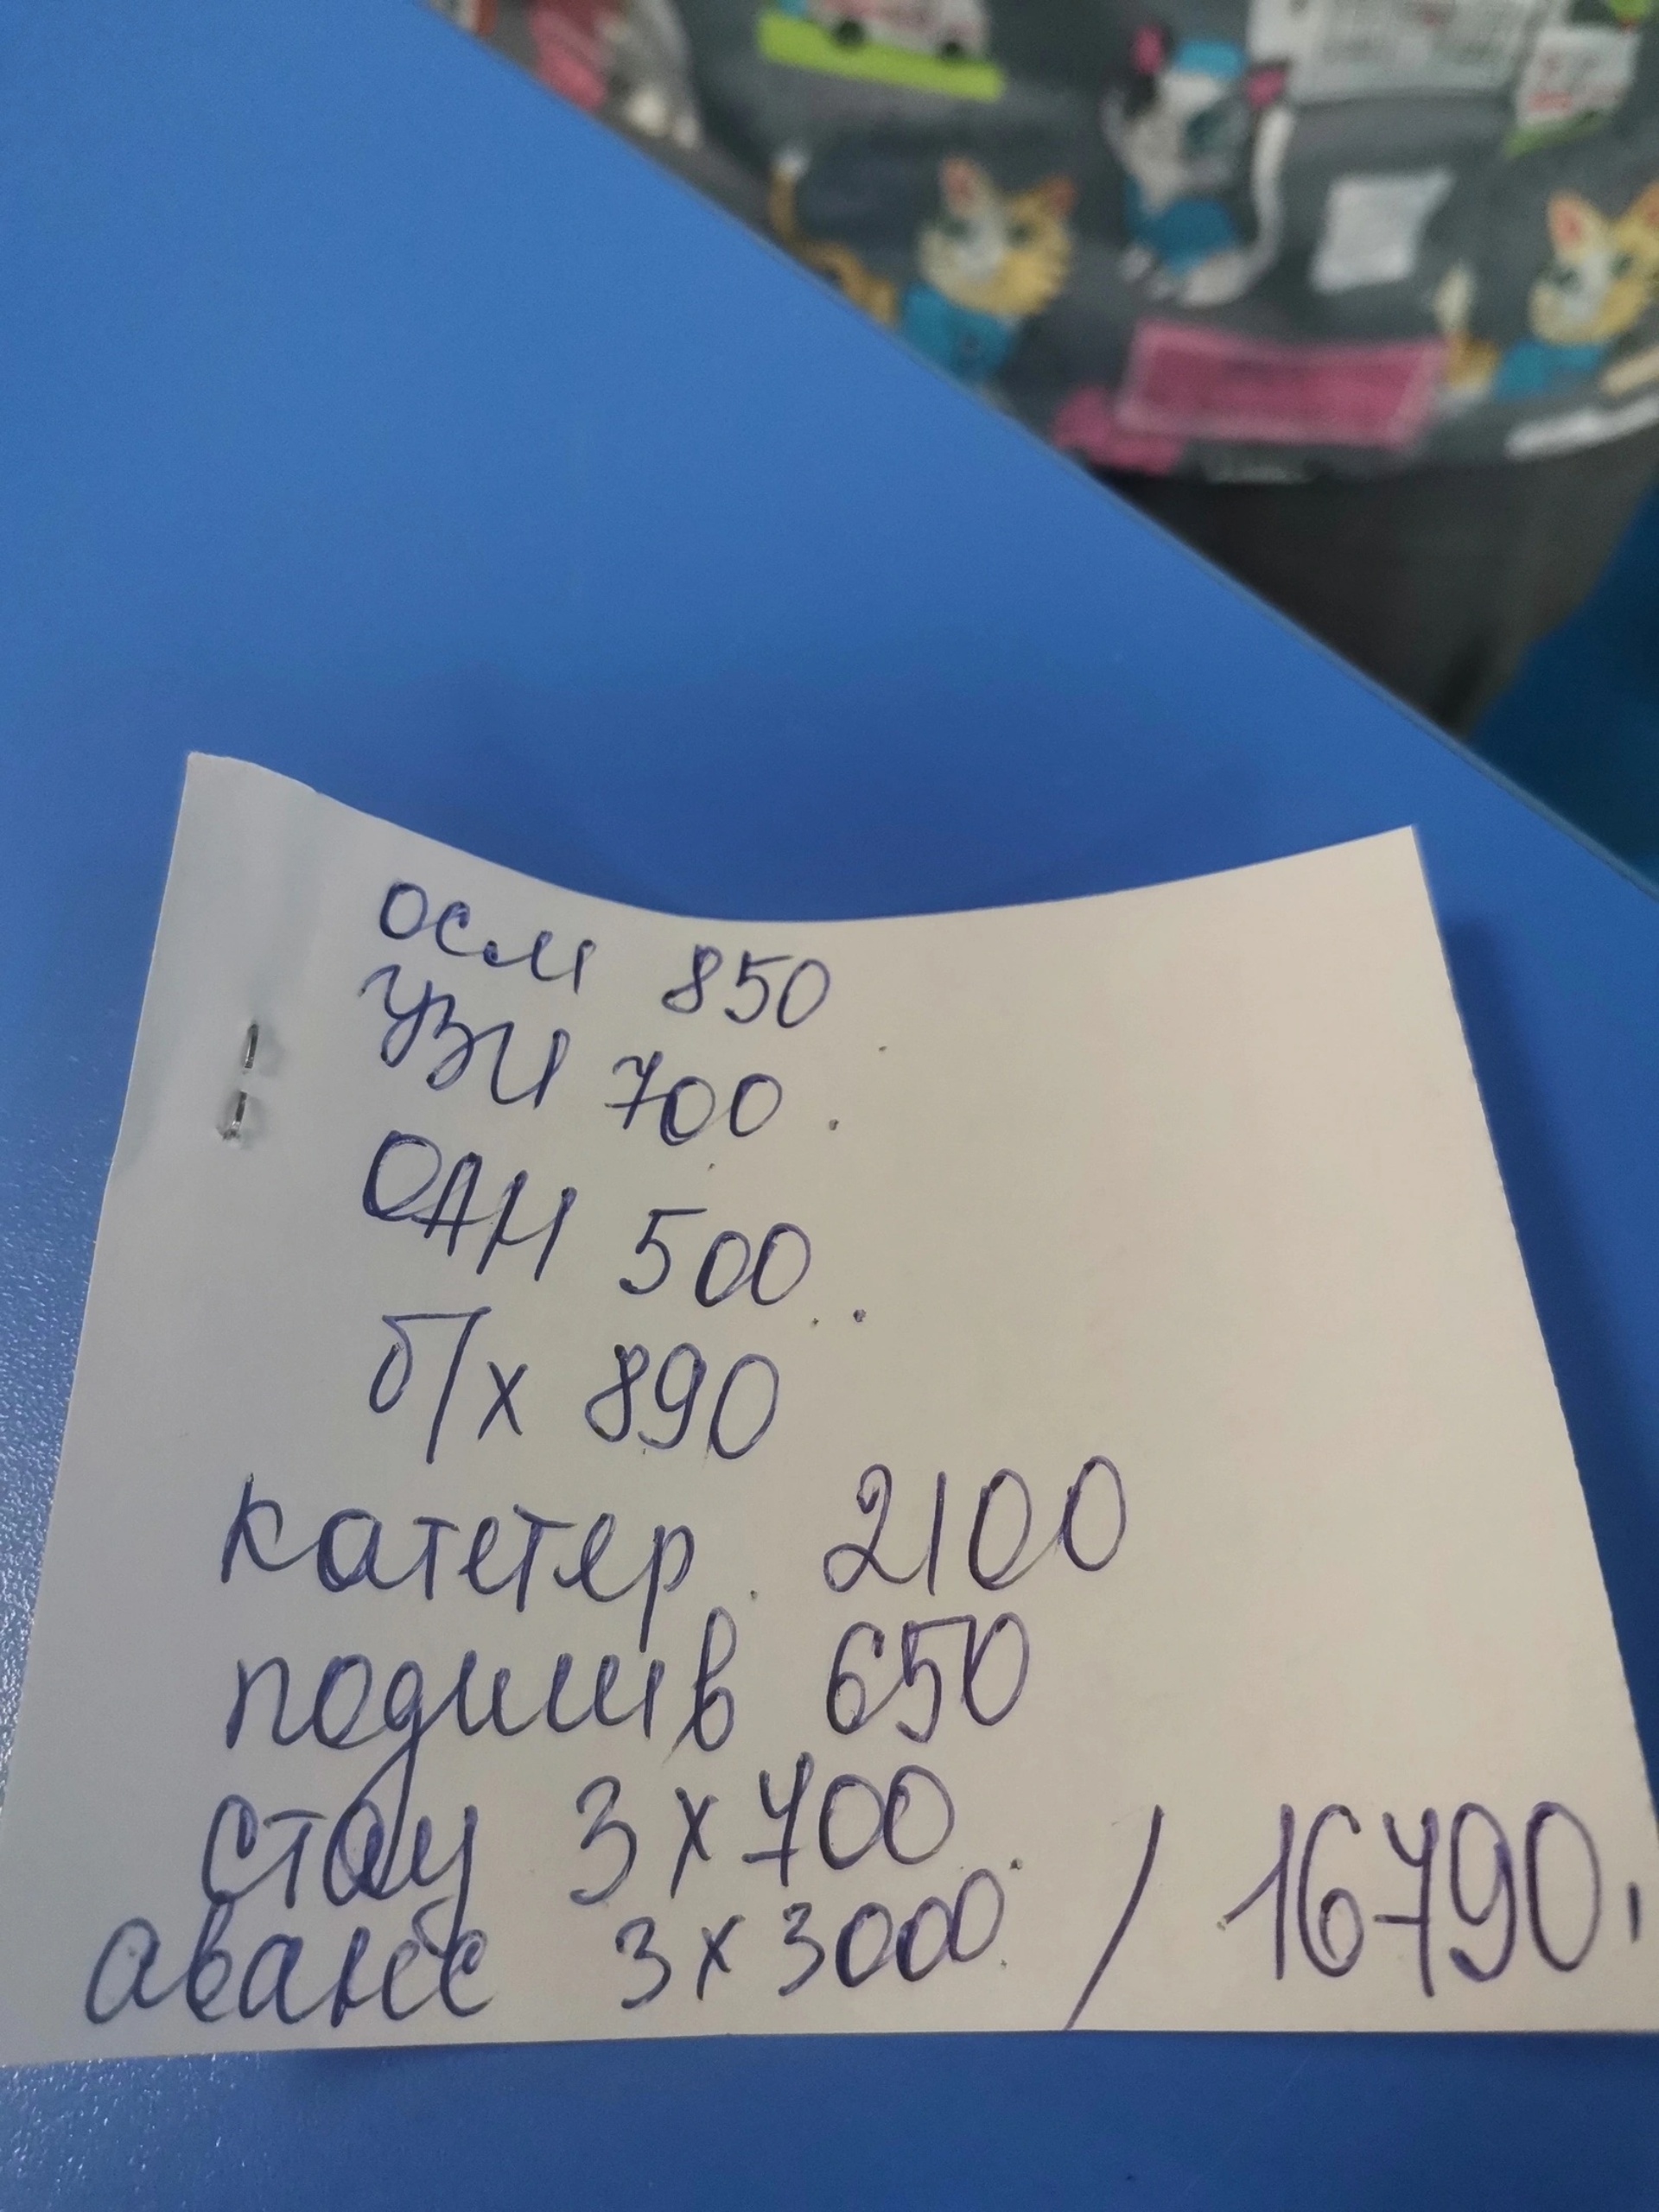 осм 850
УЗИ 700
ОАН 500
б/х 890
катетер 2100
подшив 650
стац 3 х 700
аванс 3 х 3000 / 16790